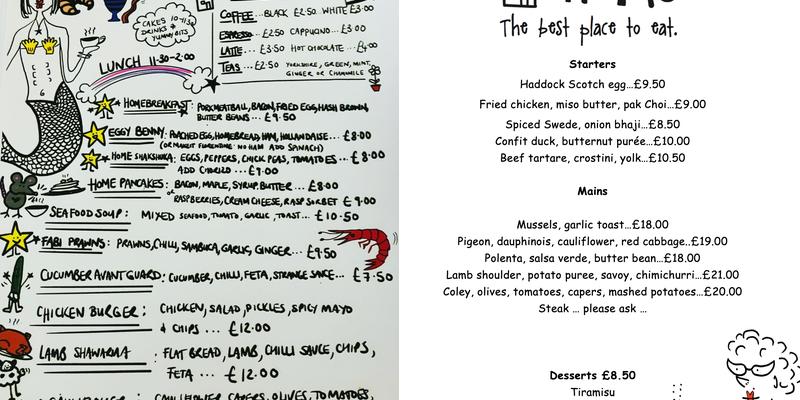 CAKES 10-11:30
DRINKS &
YUMMY BITS
COFFEE...BLACK £2.50 WHITE £3.00
ESPRESSO...£2.50 CAPPUCINO...£3.00
LATTE...£3.50 HOT CHOCOLATE...£4.00
TEAS...£2.50 YORKSHIRE, GREEN, MINT,
GINGER OR CHAMOMILE
LUNCH 11:30-2:00
HOMEBREAKFAST: PORKMEATBALL, BACON, FRIED EGG, HASH BROWN,
BUTTER BEANS...£9.50
EGGY BENNY: POACHED EGG, HOMEBREAD, HAM, HOLLANDAISE...£8.00
(OR MAKE IT FLORENTINE: NO HAM ADD SPINACH)
HOME SHAKSHUKA: EGGS, PEPPERS, CHICK PEAS, TOMATOES...£8.00
ADD CHORIZO...£9.00
HOME PANCAKES: BACON, MAPLE, SYRUP, BUTTER...£8.00
OR RASPBERRIES, CREAM CHEESE, RASP SORBET £9.00
SEAFOOD SOUP: MIXED SEAFOOD, TOMATO, GARLIC, TOAST...£10.50
FABI PRAWNS: PRAWNS, CHILLI, SAMBUKA, GARLIC, GINGER...£9.50
CUCUMBER AVANT GUARD: CUCUMBER, CHILLI, FETA, STRANGE SAUCE...£7.50
CHICKEN BURGER: CHICKEN, SALAD, PICKLES, SPICY MAYO
& CHIPS...£12.00
LAMB SHAWARMA: FLAT BREAD, LAMB, CHILLI SAUCE, CHIPS,
FETA...£12.00
CAULIFLOWER, CAPERS, OLIVES, TOMATOES,
The best place to eat.
Starters
Haddock Scotch egg...£9.50
Fried chicken, miso butter, pak Choi...£9.00
Spiced Swede, onion bhaji...£8.50
Confit duck, butternut purée...£10.00
Beef tartare, crostini, yolk...£10.50
Mains
Mussels, garlic toast...£18.00
Pigeon, dauphinois, cauliflower, red cabbage..£19.00
Polenta, salsa verde, butter bean...£18.00
Lamb shoulder, potato puree, savoy, chimichurri...£21.00
Coley, olives, tomatoes, capers, mashed potatoes...£20.00
Steak ... please ask ...
Desserts £8.50
Tiramisu